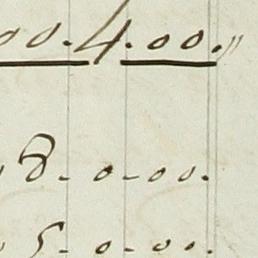 00.4.00.,,
8.-0-00.
5.-0-00.